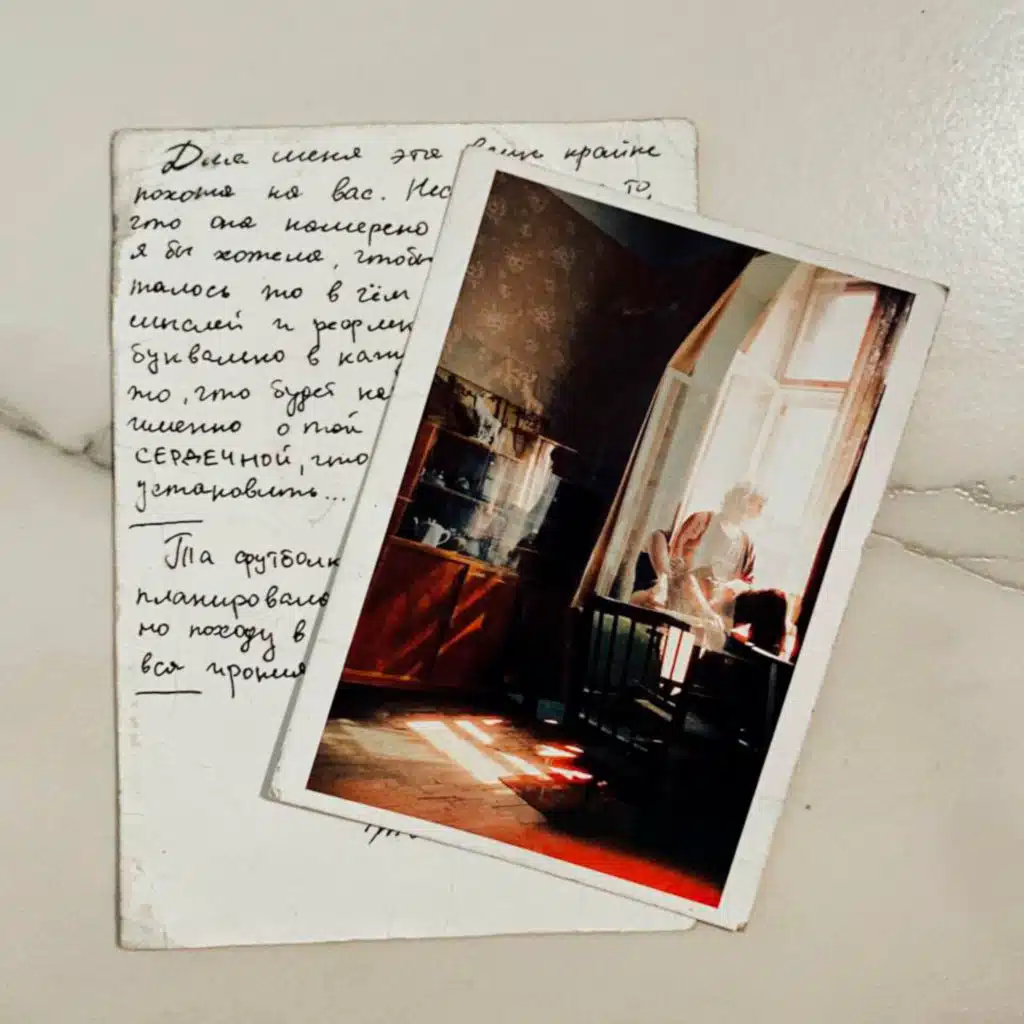 Для меня эта вещь крайне
похожа на вас. Нес то,
что она намерено
я бы хотела, чтобы
талось то в чём
мыслей и рефлек
буквально в каж
то, что будет на
именно о той
СЕРДЕЧНОЙ, что
установить...
Та футболк
планировала
но походу в
вся ирония